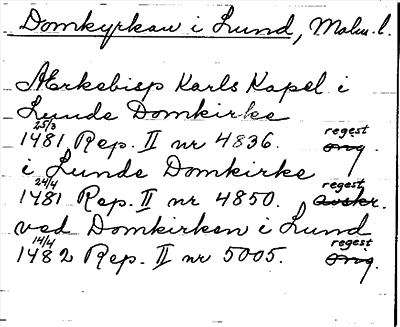 Domkyrkan i Lund, Malm. l.
Ærkebisp Karls Kapel i
Lunde Domkirke
25/3 regest
1481 Rep. II nr 4836. orig.
i Lunde Domkirke
24/4 regest
1481 Rep. II nr 4850. avskr.
ved Domkirken i Lund
14/4 regest
1482 Rep. II nr 5005. orig.